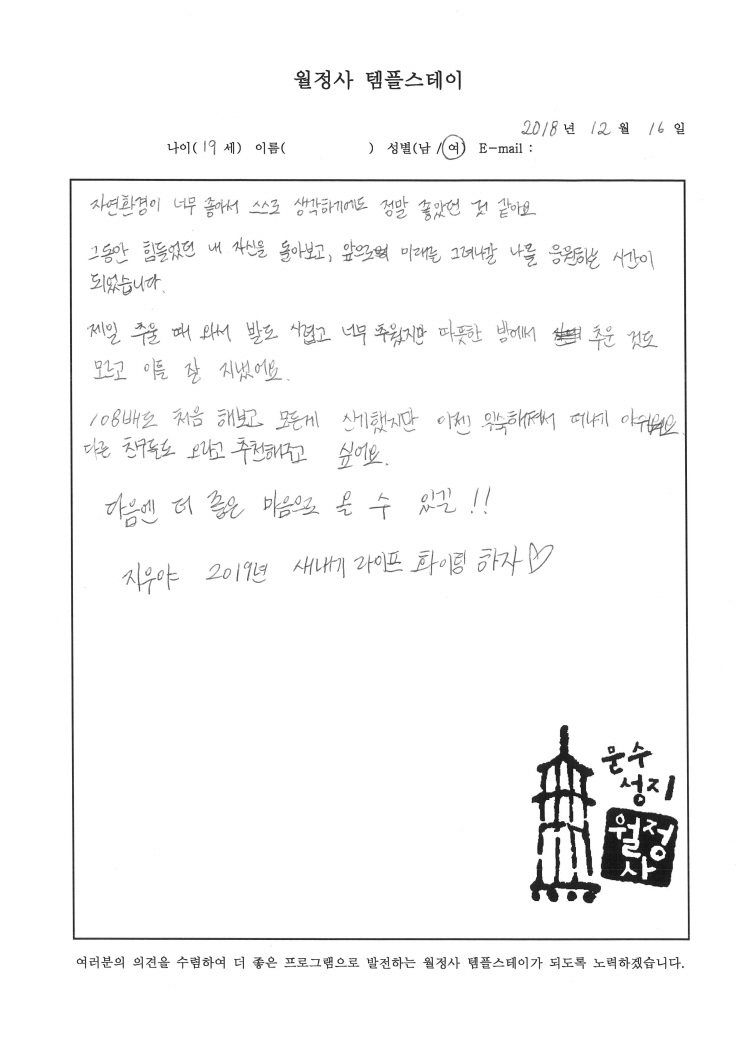 월정사 템플스테이
2018 년 12 월 16 일
나이( 19 세) 이름( ) 성별(남 / 여) E-mail :
자연환경이 너무 좋아서 스스로 생각하기에도 정말 좋았던 것 같아요
그동안 힘들었던 내 자신을 돌아보고, 앞으로의 미래를 그려나갈 나를 응원하는 시간이
되었습니다.
제일 추울 때 와서 발도 시렵고 너무 추웠지만 따뜻한 방에서 추운 것도
모르고 이틀 잘 지냈어요.
108배도 처음 해보고 모든게 신기했지만 이젠 익숙해져서 떠나기 아쉬워요.
다른 친구들도 오라고 추천해주고 싶어요.
다음엔 더 좋은 마음으로 올 수 있길 !!
지우야 2019년 새내기 라이프 화이팅 하자♡
문수
성지
월정
사
여러분의 의견을 수렴하여 더 좋은 프로그램으로 발전하는 월정사 템플스테이가 되도록 노력하겠습니다.